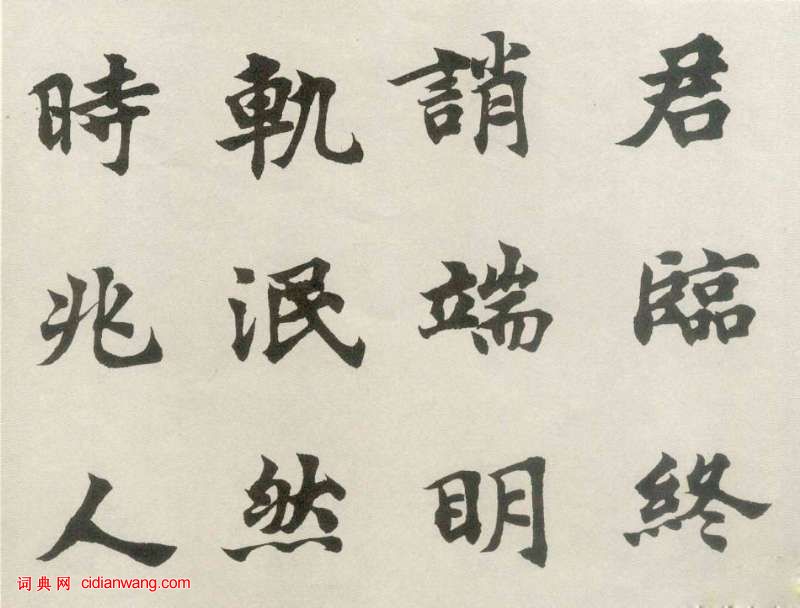 君臨終
誚端明
軌泯然
時兆人
词典网 cidianwang.com